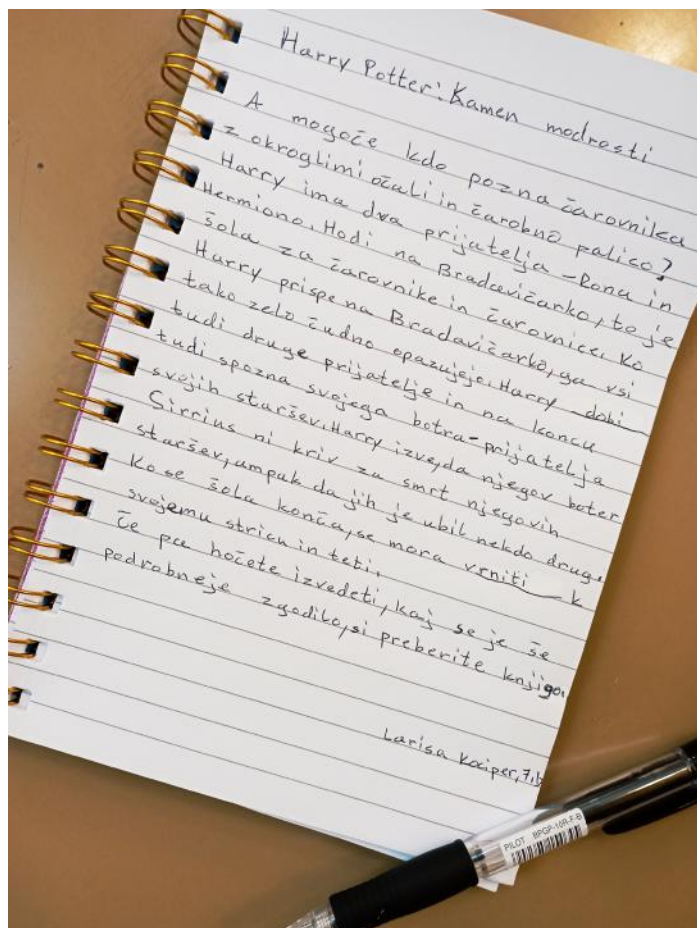 Harry Potter: Kamen modrosti
A mogoče kdo pozna čarovnika
z okroglimi očali in čarobno palico?
Harry ima dva prijatelja - Rona in
Hermiono. Hodi na Bradavičarko, to je
šola za čarovnike in čarovnice. Ko
Harry prispe na Bradavičarko, ga vsi
tako zelo čudno opazujejo. Harry dobi
tudi druge prijatelje in na koncu
tudi spozna svojega botra-prijatelja
svojih staršev. Harry izve, da njegov boter
Sirrius ni kriv za smrt njegovih
staršev, ampak da jih je ubil nekdo drug.
Ko se šola konča, se mora vrniti k
svojemu stricu in teti.
Če pa hočete izvedeti, kaj se je še
podrobneje zgodilo, si preberite knjigo.
Larisa Kociper, 7. b
PILOT BPGP-10R-F-B